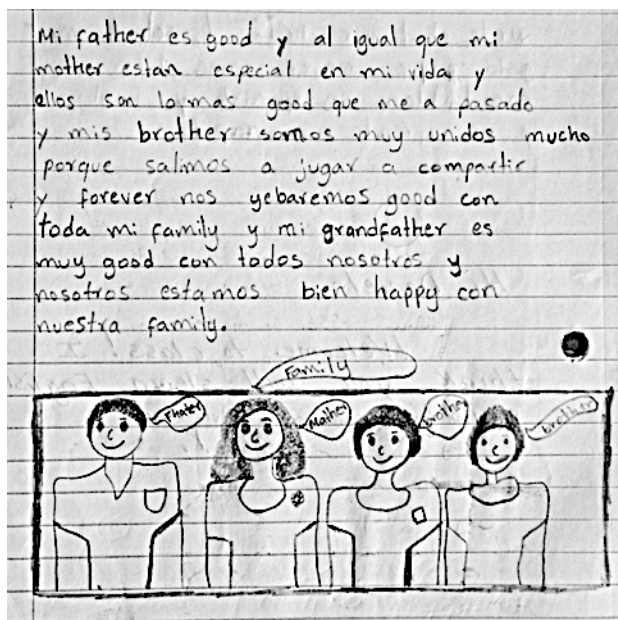 Mi father es good y al igual que mi
mother estan especial en mi vida y
ellos son lo mas good que me a pasado
y mis brother somos muy unidos mucho
porque salimos a jugar a compartir
y forever nos yebaremos good con
toda mi family y mi grandfather es
muy good con todos nosotros y
nosotros estamos bien happy con
nuestra family.
Family
Fhater
Mother
brother
brother